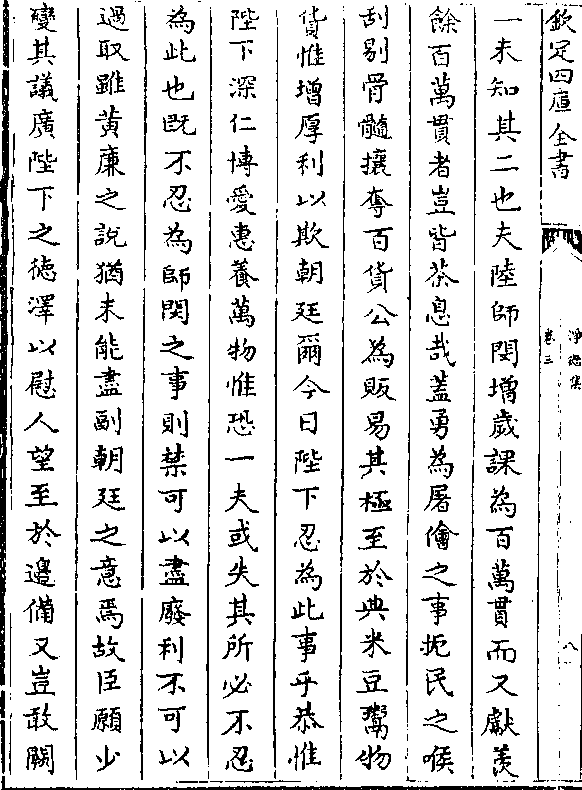 欽定四庫全書
淨德集
卷三
八
一未知其二也夫陸師閔增歲課為百萬貫而又獻羨
餘百萬貫者豈皆茶息哉蓋勇為屠儈之事扼民之喉
刮剔骨髓攘奪百貨公為販易其極至於典米豆鬻物
貨惟增厚利以欺朝廷爾今日陛下忍為此事乎恭惟
陛下深仁博愛惠養萬物惟恐一夫或失其所必不忍
為此也既不忍為師閔之事則禁可以盡廢利不可以
過取雖黄廉之説猶未能盡副朝廷之意焉故臣願少
變其議廣陛下之徳澤以慰人望至於邊備又豈敢闕